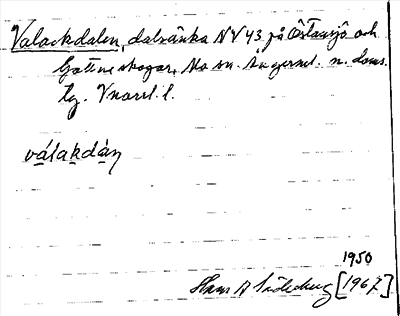 Valackdalen, dalsänka NV 43 på Östansjö och
Gottne skogar, Mo sn. Ångerml. n. doms.
lg. Vnorrl. l.
válakdàn
1950
Hans A Söderberg [1967]